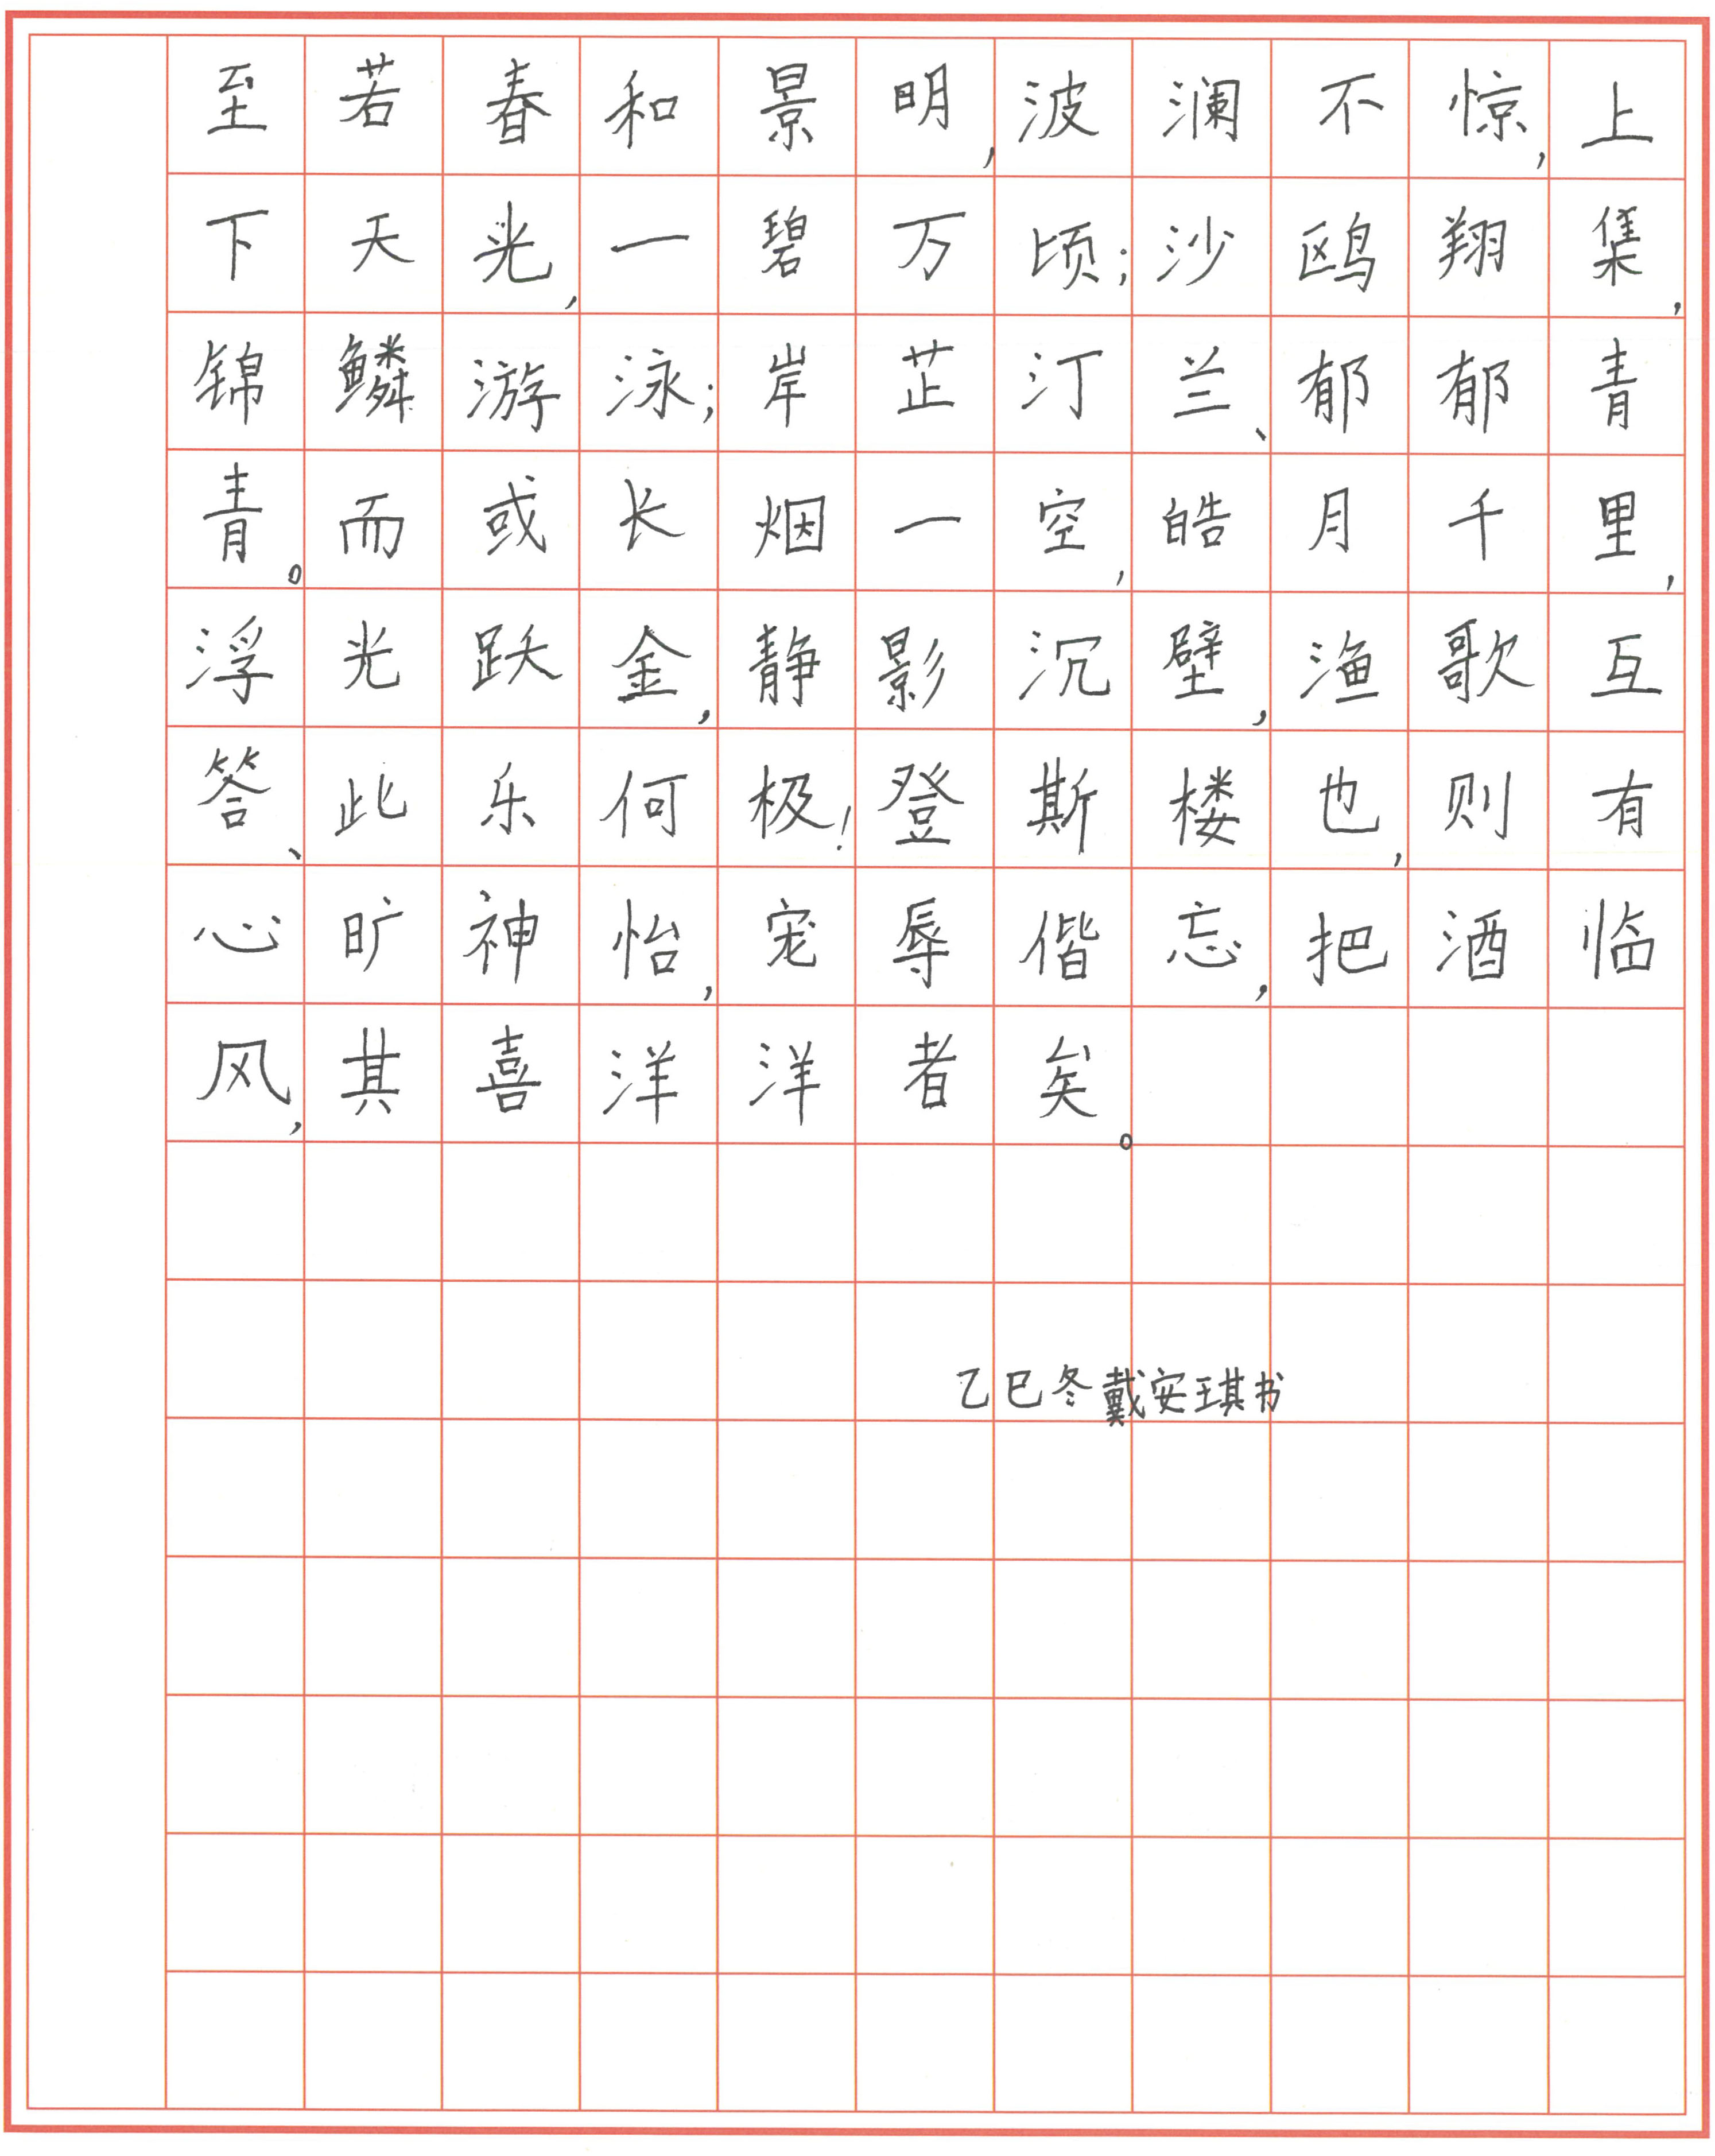 至若春和景明,波澜不惊,上
下天光,一碧万顷;沙鸥翔集,
锦鳞游泳;岸芷汀兰、郁郁青
青。而或长烟一空,皓月千里,
浮光跃金,静影沉壁,渔歌互
答、此乐何极!登斯楼也,则有
心旷神怡,宠辱偕忘,把酒临
风,其喜洋洋者矣。
乙巳冬戴安琪书